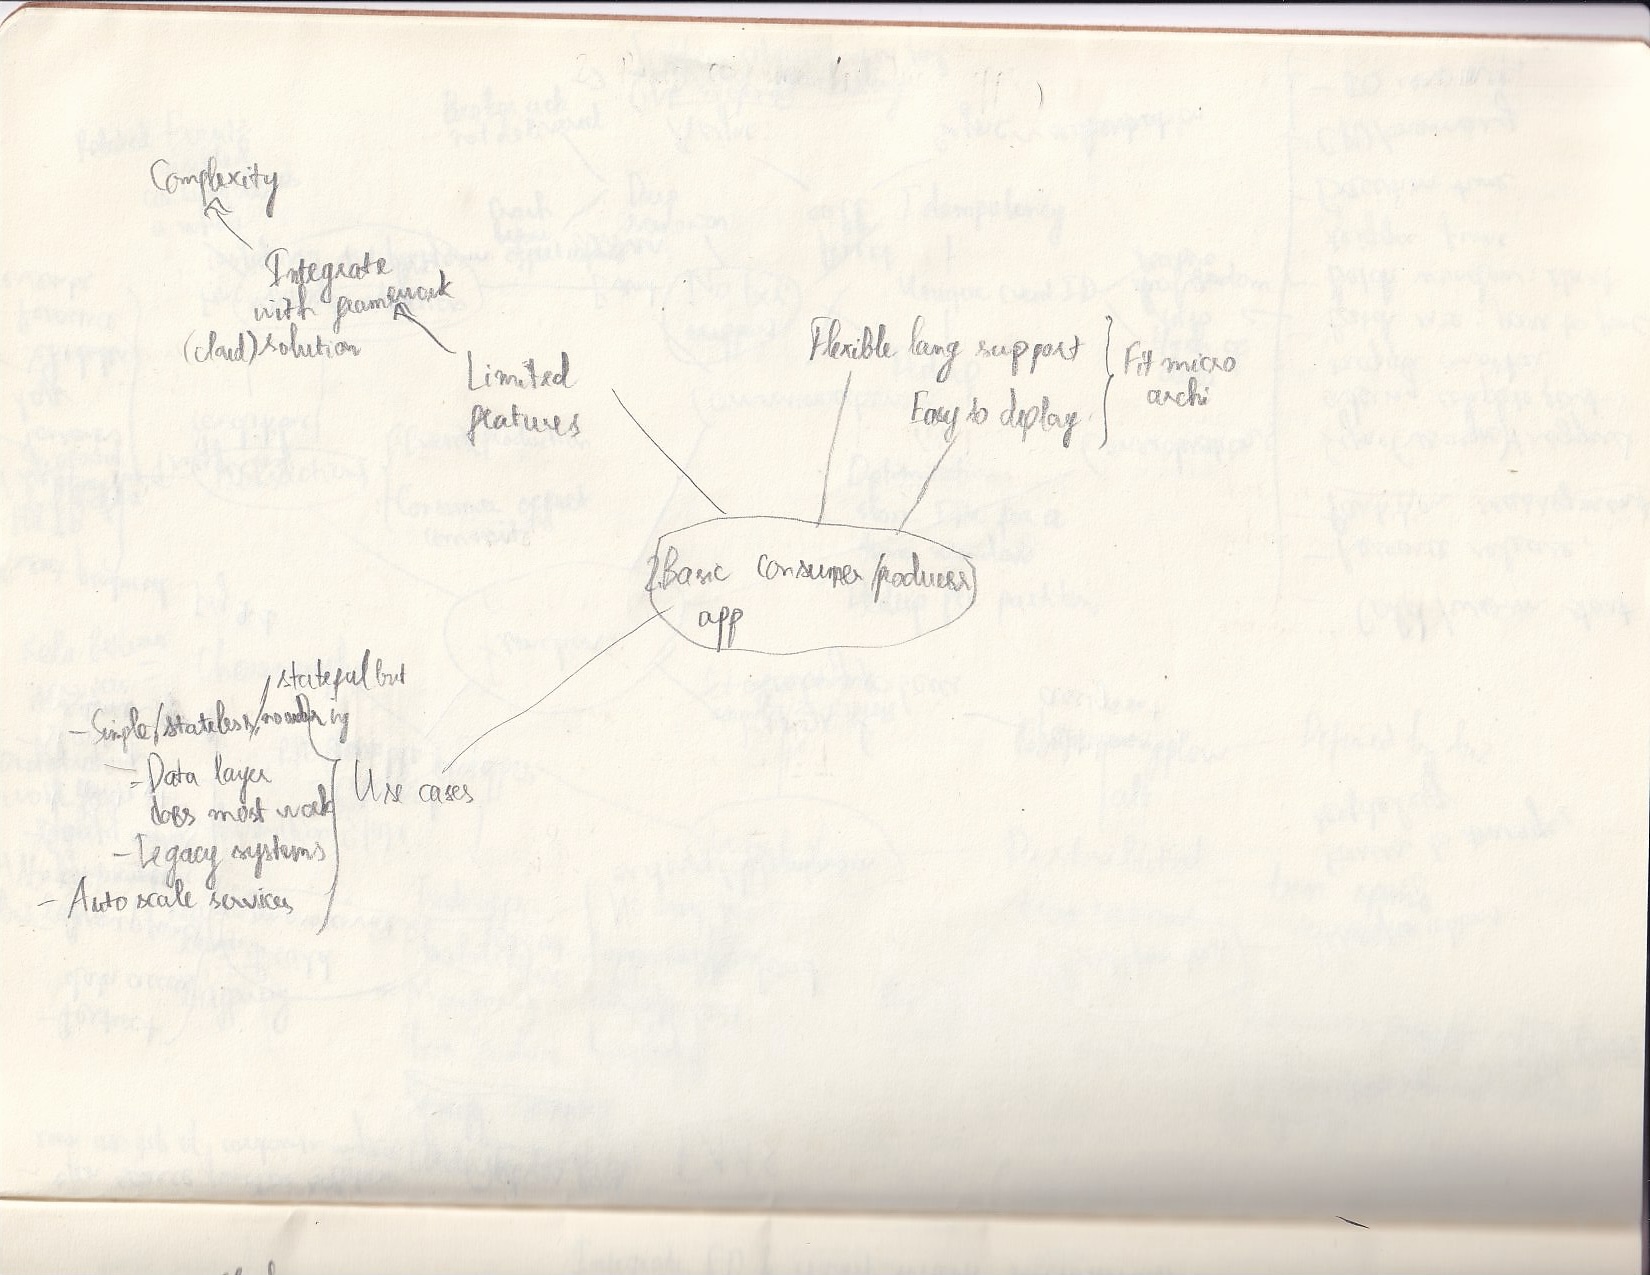 Complexity
Integrate
with framework
(cloud) solution
Limited
features
Flexible lang support
Easy to deploy
Fit micro
archi
2. Basic consumer/producer
app
stateful but
- Simple/stateless/
- Data layer
does most work
- Legacy systems
- Auto scale services
Use cases